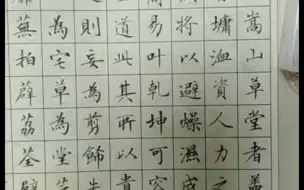 嵩山草堂者蓋
墉洫資人力之
將以避燥濕成
易叶乾坤可容
道此其所以貴
則妄為剪飾
為宅草為堂芝
蕪拍薜荔荃壁